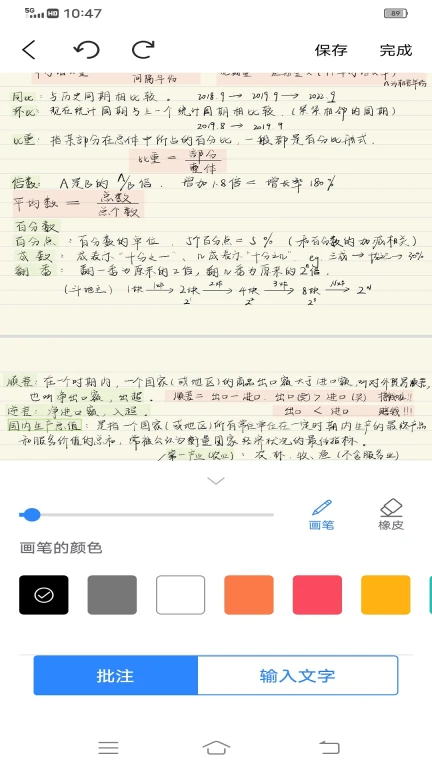 5G HD 10:47 89
保存 完成
间隔年份
同比：与历史同期相比较。 2018.9 → 2019.9 → 2020.9
环比：现在统计周期与上一个统计周期相比较。(紧紧相邻的周期)
2019.8 → 2019.9
比重：指某部分在总体中所占的百分比，一般都是百分比形式。
比重 = 部分/整体
倍数：A是B的A/B倍. 增加1.8倍 = 增长率180%
平均数 = 总数/总个数
百分数
百分点：百分数的单位. 5个百分点 = 5% (和百分数的加减相关)
成数：成表示"十分之一"、几成表示"十分之几". eg. 三成 → 30%
翻番：翻一番为原来的2倍，翻n番为原来的2ⁿ倍.
1块 → 2块 → 4块 → 8块 → 2ⁿ
2¹ 2² 2³
顺差：在一个时期内，一个国家(或地区)的商品出口额大于进口额，
也叫净出口额，出超. 顺差 = 出口 - 进口. 出口(卖) > 进口(买)
逆差：净进口额，入超. 出口 < 进口 赔钱!!!
国内生产总值：是指一个国家(或地区)所有常住单位在一定时期内生产的最终产品
和服务价值的总和，常被公认为衡量国家经济状况的最佳指标.
第一产业(农业)：农、林、牧、渔 (不含服务业)
画笔 橡皮
画笔的颜色
批注 输入文字